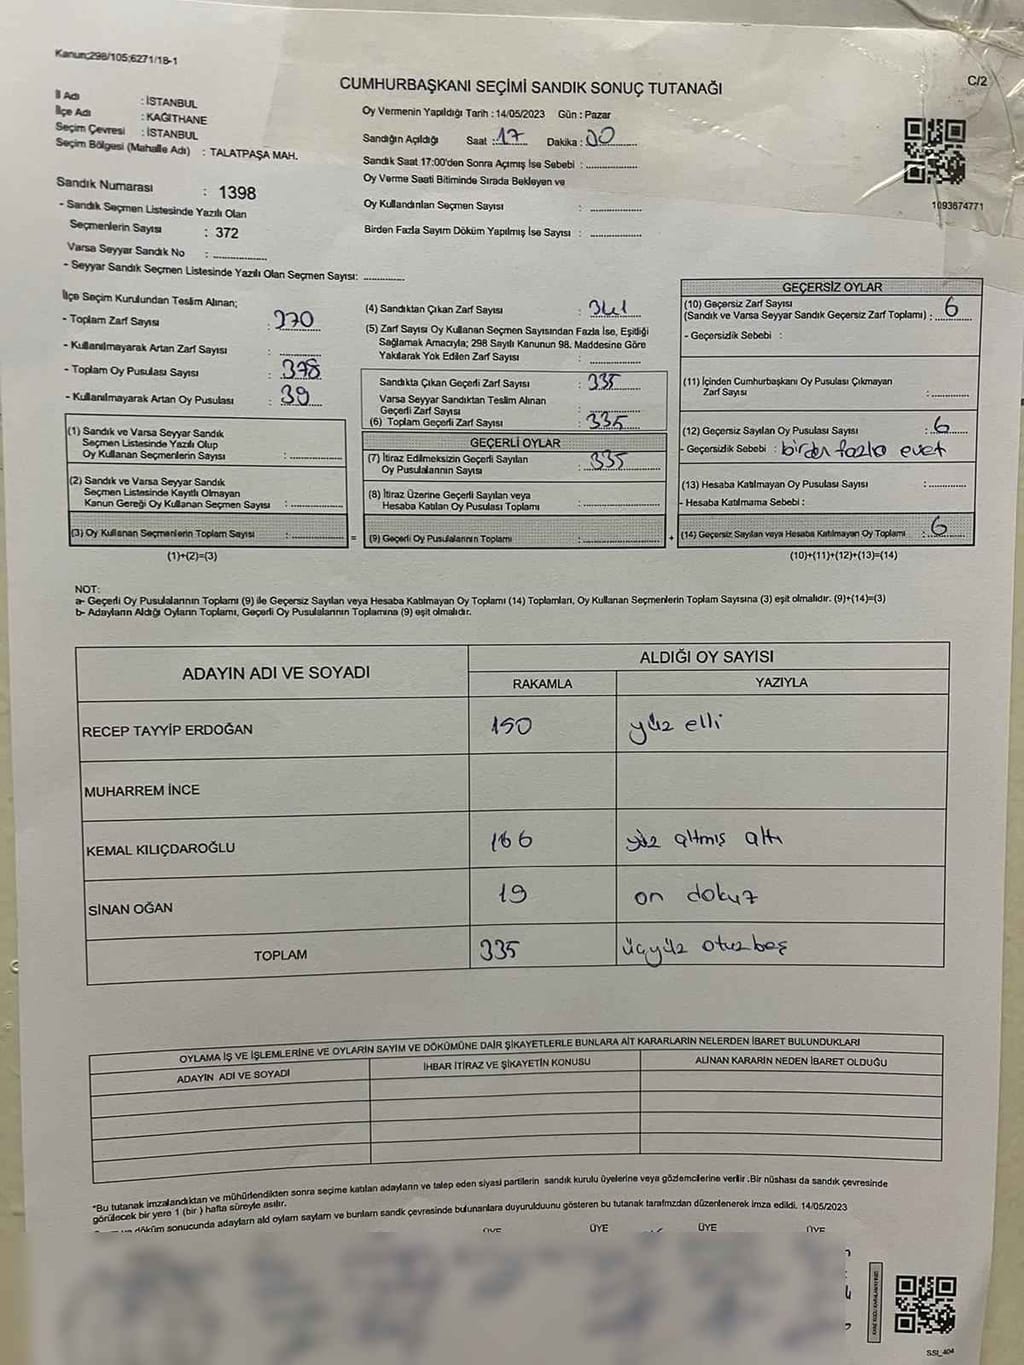 Kanun;298/105;6271/18-1
C/2
CUMHURBAŞKANI SEÇİMİ SANDIK SONUÇ TUTANAĞI
İl Adı : İSTANBUL
İlçe Adı : KAĞITHANE
Seçim Çevresi : İSTANBUL
Seçim Bölgesi (Mahalle Adı) : TALATPAŞA MAH.
Oy Vermenin Yapıldığı Tarih : 14/05/2023 Gün : Pazar
Sandığın Açıldığı Saat : 17 Dakika : 00
Sandık Saat 17:00'den Sonra Açımış İse Sebebi :
Oy Verme Saati Bitiminde Sırada Bekleyen ve
Oy Kullandırılan Seçmen Sayısı :
Birden Fazla Sayım Döküm Yapılmış İse Sayısı :
1093674771
Sandık Numarası : 1398
- Sandık Seçmen Listesinde Yazılı Olan
Seçmenlerin Sayısı : 372
Varsa Seyyar Sandık No :
- Seyyar Sandık Seçmen Listesinde Yazılı Olan Seçmen Sayısı:
İlçe Seçim Kurulundan Teslim Alınan;
- Toplam Zarf Sayısı : 370
- Kullanılmayarak Artan Zarf Sayısı :
- Toplam Oy Pusulası Sayısı : 378
- Kullanılmayarak Artan Oy Pusulası : 39
(1) Sandık ve Varsa Seyyar Sandık
Seçmen Listesinde Yazılı Olup
Oy Kullanan Seçmenlerin Sayısı :
(2) Sandık ve Varsa Seyyar Sandık
Seçmen Listesinde Kayıtlı Olmayan
Kanun Gereği Oy Kullanan Seçmen Sayısı :
(3) Oy Kullanan Seçmenlerin Toplam Sayısı :
(1)+(2)=(3)
(4) Sandıktan Çıkan Zarf Sayısı : 341
(5) Zarf Sayısı Oy Kullanan Seçmen Sayısından Fazla İse, Eşitliği
Sağlamak Amacıyla; 298 Sayılı Kanunun 98. Maddesine Göre
Yakılarak Yok Edilen Zarf Sayısı :
Sandıkta Çıkan Geçerli Zarf Sayısı : 335
Varsa Seyyar Sandıktan Teslim Alınan
Geçerli Zarf Sayısı :
(6) Toplam Geçerli Zarf Sayısı : 335
GEÇERLİ OYLAR
(7) İtiraz Edilmeksizin Geçerli Sayılan
Oy Pusulalarının Sayısı : 335
(8) İtiraz Üzerine Geçerli Sayılan veya
Hesaba Katılan Oy Pusulası Toplamı :
= (9) Geçerli Oy Pusulalarının Toplamı :
GEÇERSİZ OYLAR
(10) Geçersiz Zarf Sayısı
(Sandık ve Varsa Seyyar Sandık Geçersiz Zarf Toplamı) : 6
- Geçersizlik Sebebi :
(11) İçinden Cumhurbaşkanı Oy Pusulası Çıkmayan
Zarf Sayısı :
(12) Geçersiz Sayılan Oy Pusulası Sayısı : 6
- Geçersizlik Sebebi : birden fazla evet
(13) Hesaba Katılmayan Oy Pusulası Sayısı :
- Hesaba Katılmama Sebebi :
+ (14) Geçersiz Sayılan veya Hesaba Katılmayan Oy Toplamı : 6
(10)+(11)+(12)+(13)=(14)
NOT:
a- Geçerli Oy Pusulalarının Toplamı (9) ile Geçersiz Sayılan veya Hesaba Katılmayan Oy Toplamı (14) Toplamları, Oy Kullanan Seçmenlerin Toplam Sayısına (3) eşit olmalıdır. (9)+(14)=(3)
b- Adayların Aldığı Oyların Toplamı, Geçerli Oy Pusulalarının Toplamına (9) eşit olmalıdır.
ADAYIN ADI VE SOYADI
ALDIĞI OY SAYISI
RAKAMLA YAZIYLA
RECEP TAYYİP ERDOĞAN 150 yüz elli
MUHARREM İNCE
KEMAL KILIÇDAROĞLU 166 yüz altmış altı
SİNAN OĞAN 19 on dokuz
TOPLAM 335 üçyüz otuzbeş
OYLAMA İŞ VE İŞLEMLERİNE VE OYLARIN SAYIM VE DÖKÜMÜNE DAİR ŞİKAYETLERLE BUNLARA AİT KARARLARIN NELERDEN İBARET BULUNDUKLARI
ADAYIN ADI VE SOYADI İHBAR İTİRAZ VE ŞİKAYETİN KONUSU ALINAN KARARIN NEDEN İBARET OLDUĞU
*Bu tutanak imzalandıktan ve mühürlendikten sonra seçime katılan adayların ve talep eden siyasi partilerin sandık kurulu üyelerine veya gözlemcilerine verilir .Bir nüshası da sandık çevresinde
görülecek bir yere 1 (bir ) hafta süreyle asılır.
döküm sonucunda adayların aldı oyların sayların ve bunların sandık çevresinde bulunanlara duyurulduunu gösteren bu tutanak tarafımzdan düzenlenerek imza edildi. 14/05/2023
ÜYE ÜYE ÜYE ÜYE
SSI_404